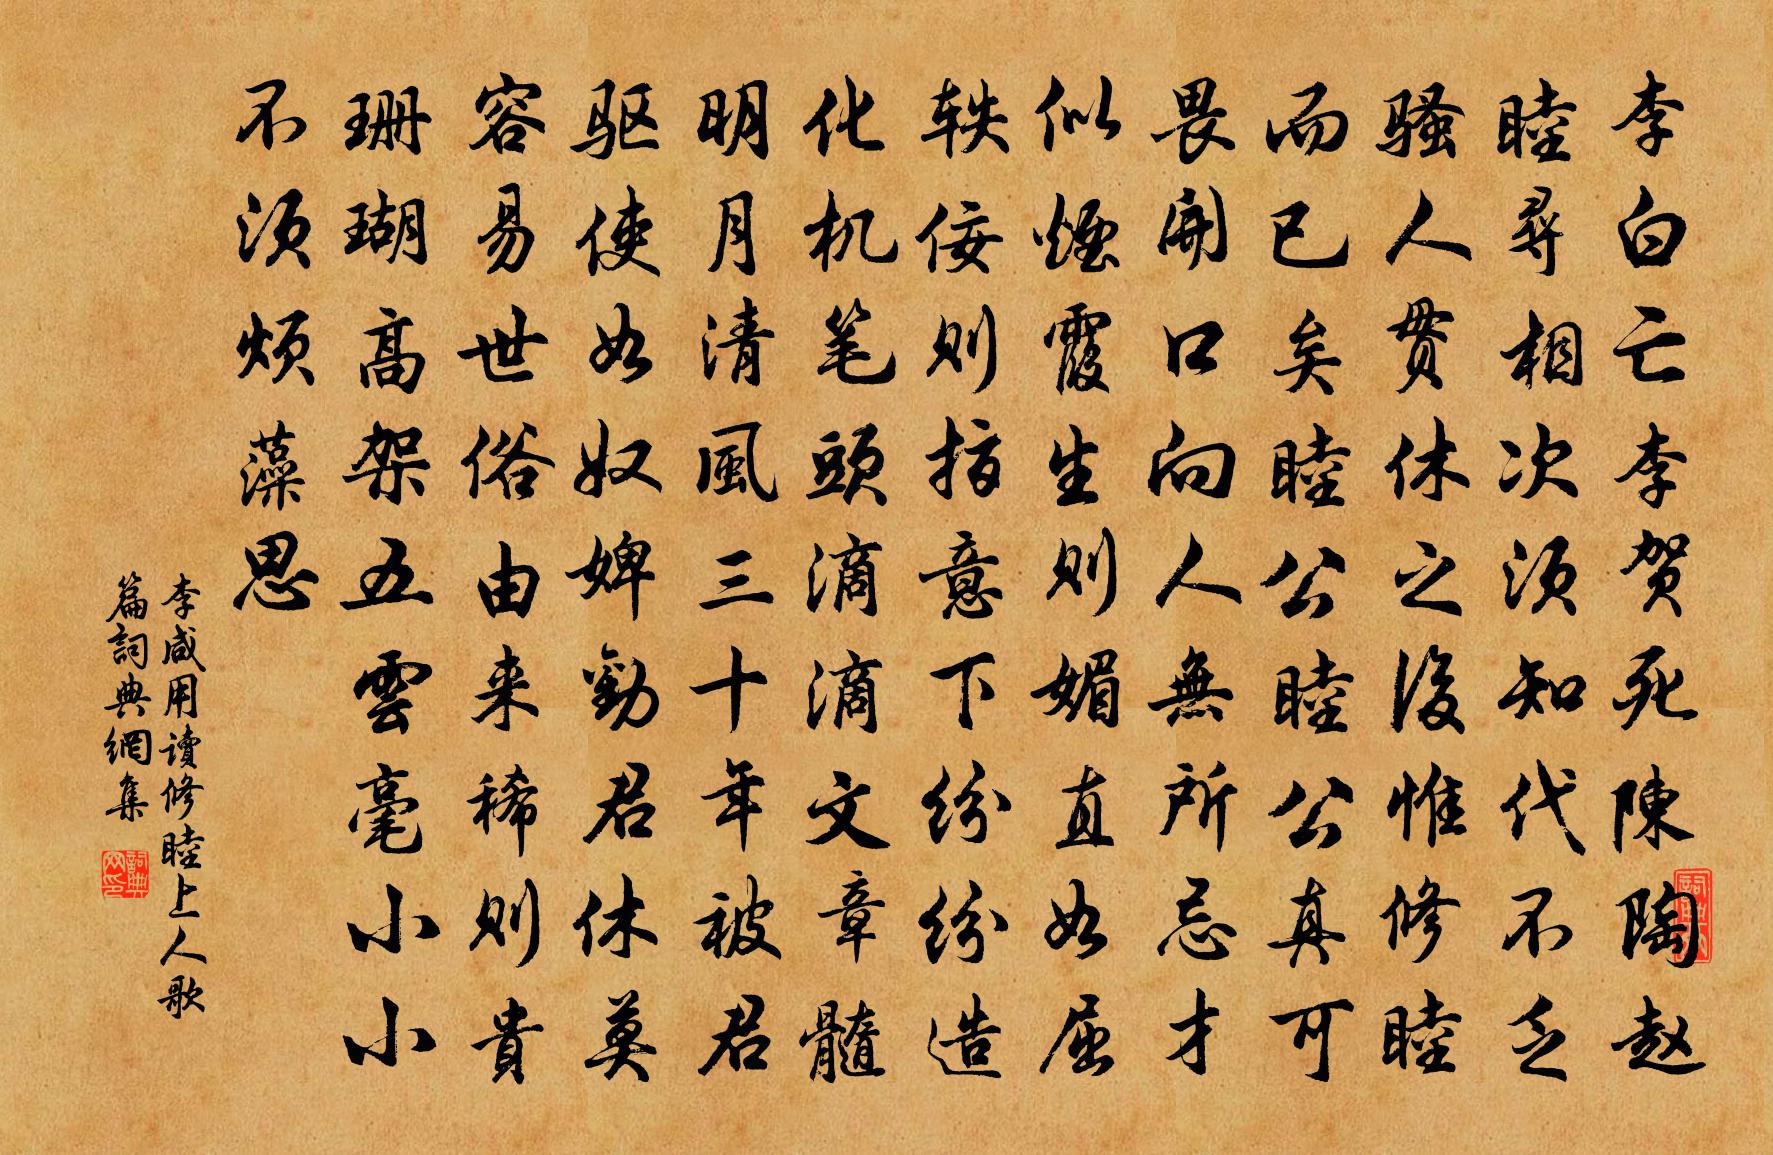 李白亡李贺死陳陶赵
睦尋相次须知代不乏
骚人贯休之後惟修睦
而已矣睦公睦公真可
畏開口向人無所忌才
似煙霞生则媚直如屈
轶佞则指意下纷纷造
化机笔頭滴滴文章髓
明月清風三十年被君
驱使如奴婢勸君休莫
容易世俗由来稀则貴
珊瑚高架五雲毫小小
不须烦藻思
李咸用讀修睦上人歌
篇詞典網集
詞典网印